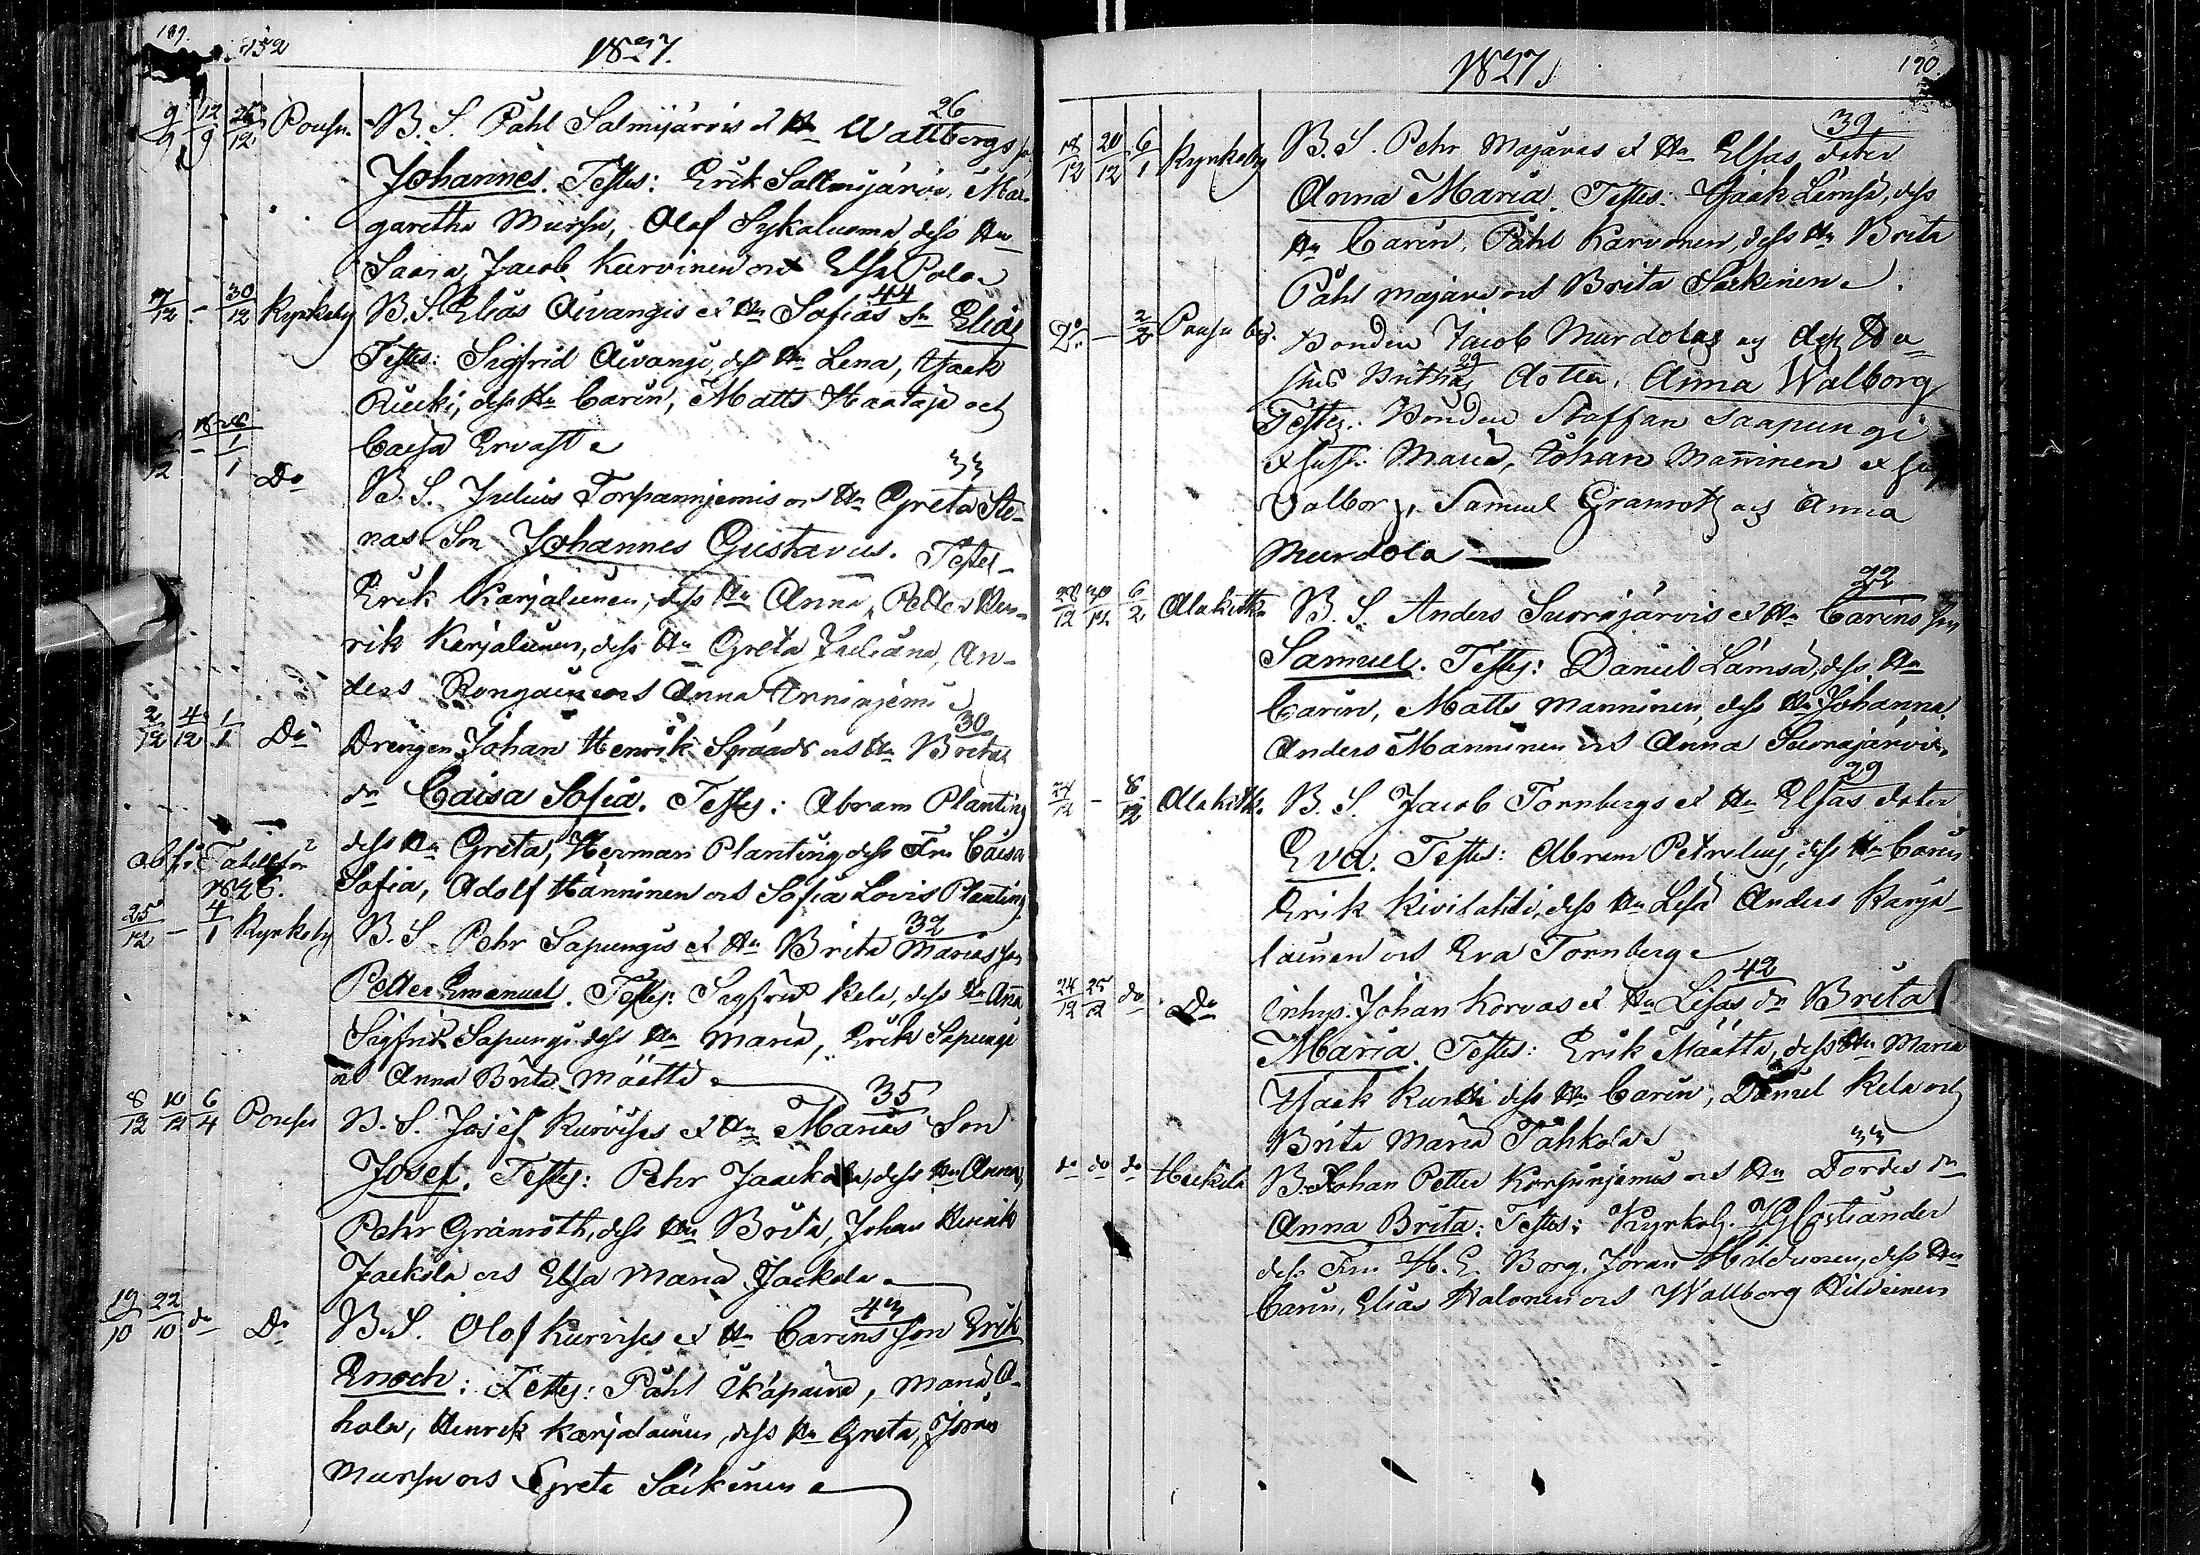 189. 152
1827.
9/9 12/9 26/12 Pousu. B. S. Påhl Salmijärvis et Hu Wallborgs 26
Johannes. Testes: Erik Sallmijärvi, Mar-
garetha Mursu, Olof Sykaluoma, dess Hu
Saara, Jacob Kurvinen och Elsa Polo
7/12 - 30/12 Kyrkoby B. S. Elias Aivangis et Hu Sofias 44 Sn Elias
Testes: Sigfrid Aivangi, dess Hu Lena, Isaak
Rucki, dess Hu Carin, Matts Haataja och
Caisa Ervast
/12 - 1/1 Do B. S. Julius Torpannjemis och Hu Greta Ste- 33
nas Son Johannes Gustavus. Testes
Erik Karjalainen, dess Hu Anna, Petter Hen-
rik Karjalainen, dess Hu Greta Juliana, An-
ders Rongainen och Anna Anninjemi
2/12 4/12 1/1 Do Drengen Johan Henrik Spraads och Hu Britas 30
dr Caisa Sofia. Testes: Abram Planting
dess Hu Greta, Herman Planting dess Fru Caisa
Sofia, Adolf Hänninen och Sofia Lovis Planting
obs. Tabell för
1826.
25/12 - 4/1 Kyrkoby B. S. Pehr Sapungis et Hu Brita Marias Son 32
Petter Emanuel. Testes: Sigfrid Kela, dess Hu Anna
Sigfrid Sapungi dess Hu Maria, Erik Sapungi
och Anna Brita Määtta
8/12 10/12 6/4 Pousu B. S. Josef Kurvises et Hu Marias Son 35
Josef. Testes: Pehr Jaakola, dess Hu Anna,
Pehr Granroth, dess Hu Brita, Johan Henrik
Jaakola och Elsa Maria Jaakola
19/10 22/10 do Do B. S. Olof Kurvises et Hu Carins Son Erik 43
Enoch: Testes: Påhl Ikäpaiva, Maria A-
hola, Henrik Karjalainen, dess Hu Greta, Jöran
Mursu och Greta Säikinen
190.
1827.
18/12 20/12 6/1 Kyrkoby B. S. Pehr Majavas et Hu Elsas doter 39
Anna Maria. Testes: Isaak Lämsä, dess
Hu Carin, Påhl Karvonen, dess Hu Brita
Påhl Majava och Brita Säikinen
Do - 2/2 Pousu by. Bonden Jacob Murdolas og dess Hu-
strus Brithas 29 dotter, Anna Walborg
Testes: Bonden Staffan Saapungi
et hust. Maria, Johan Manninen et hu
Valborg, Samuel Granroth og Anna
Murdola
28/12 30/12 6/2 Alakitk. B. S. Anders Suorajärvis et Hu Carins Son 22
Samuel. Testes: Daniel Lämsä, dess Hu
Carin, Matts Manninen, dess Hu Johanna
Anders Manninen och Anna Suorajärvi
24/12 - 8/12 Alakitk. B. S. Jacob Tornbergs et Hu Elsas doter 29
Eva. Testes: Abram Petrelius, dess Hu Carin
Erik Kivilahti, dess Hu Lisa Anders Karja-
lainen och Eva Tornberg
24/12 25/2 do Do Inhys. Johan Korvas et Hu Lisas dr Brita 42
Maria. Testes: Erik Määtta, dess Hu Maria
Isaak Kurtti dess Hu Carin, Daniel Kela och
Brita Maria Tahkola
do do do Heikila B. Johan Petter Korsunjemis och Hu Dordis dr 33
Anna Brita: Testes: Kyrkoh. Castiander
dess Fru H. E. Borg, Jöran Hildunen, dess Hu
Carin, Elias Halonen och Wallborg Hildeinen